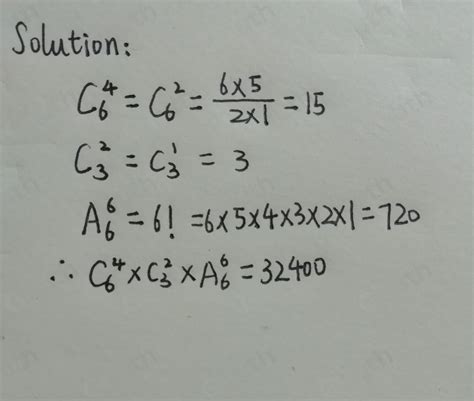 Solution:
C₆⁴ = C₆² = (6×5)/(2×1) = 15
C₃² = C₃¹ = 3
A₆⁶ = 6! = 6×5×4×3×2×1 = 720
∴ C₆⁴×C₃²×A₆⁶ = 32400